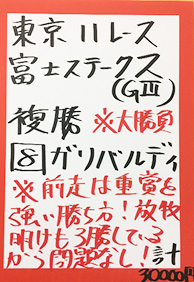 東京11レース
富士ステークス
(GIII)
複勝 ※大勝負
8 ガリバルディ
※前走は重賞を
強い勝ち方!放牧
明けも3勝している
から問題なし!計
30000円